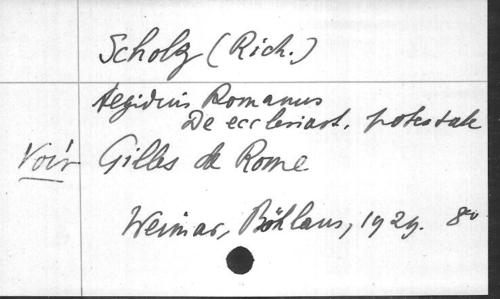 Scholz (Rich.)
Aegidius Romanus
De ecclesiast. potestate
Voir Gilles de Rome
Weimar, Böhlaus, 1929. 8vo